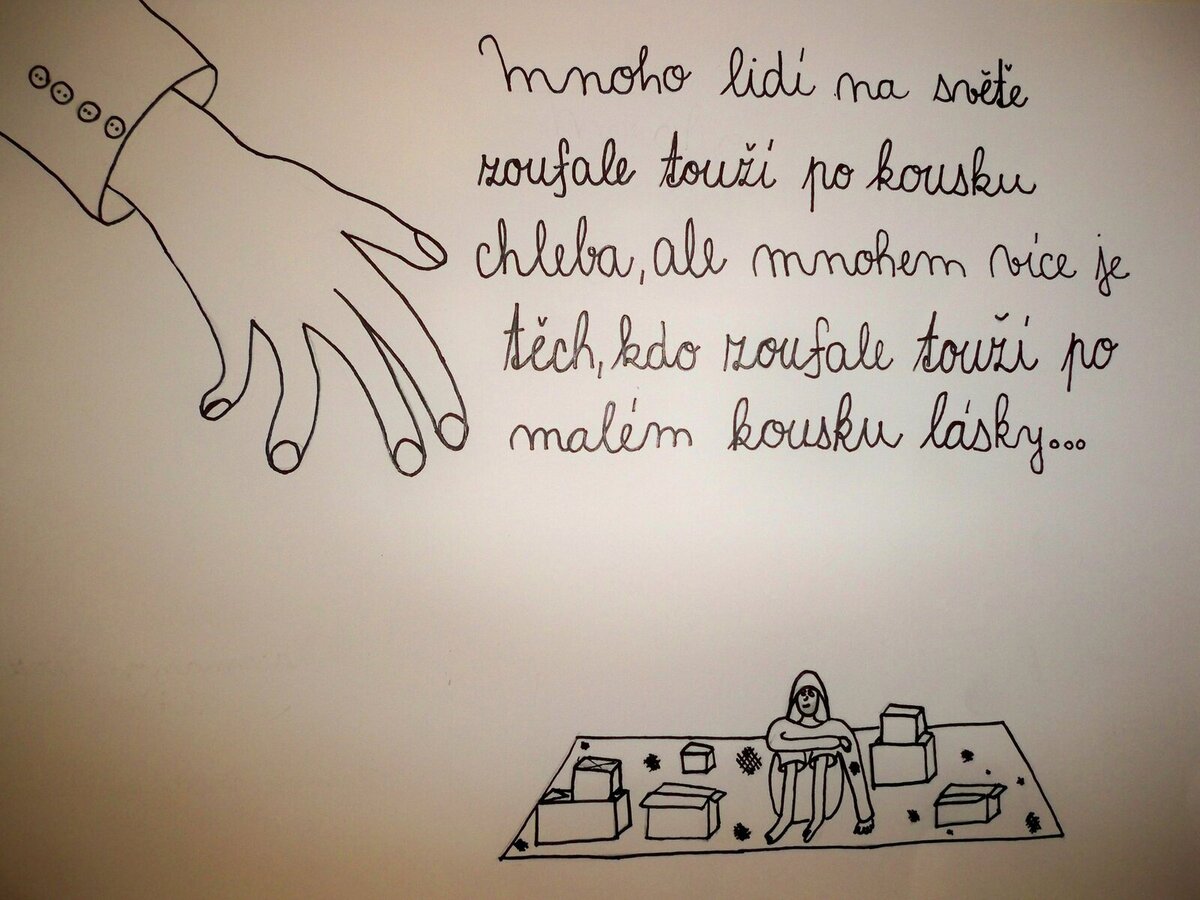 Mnoho lidí na světe
zoufale touží po kousku
chleba, ale mnohem více je
těch, kdo zoufale touží po
malém kousku lásky...